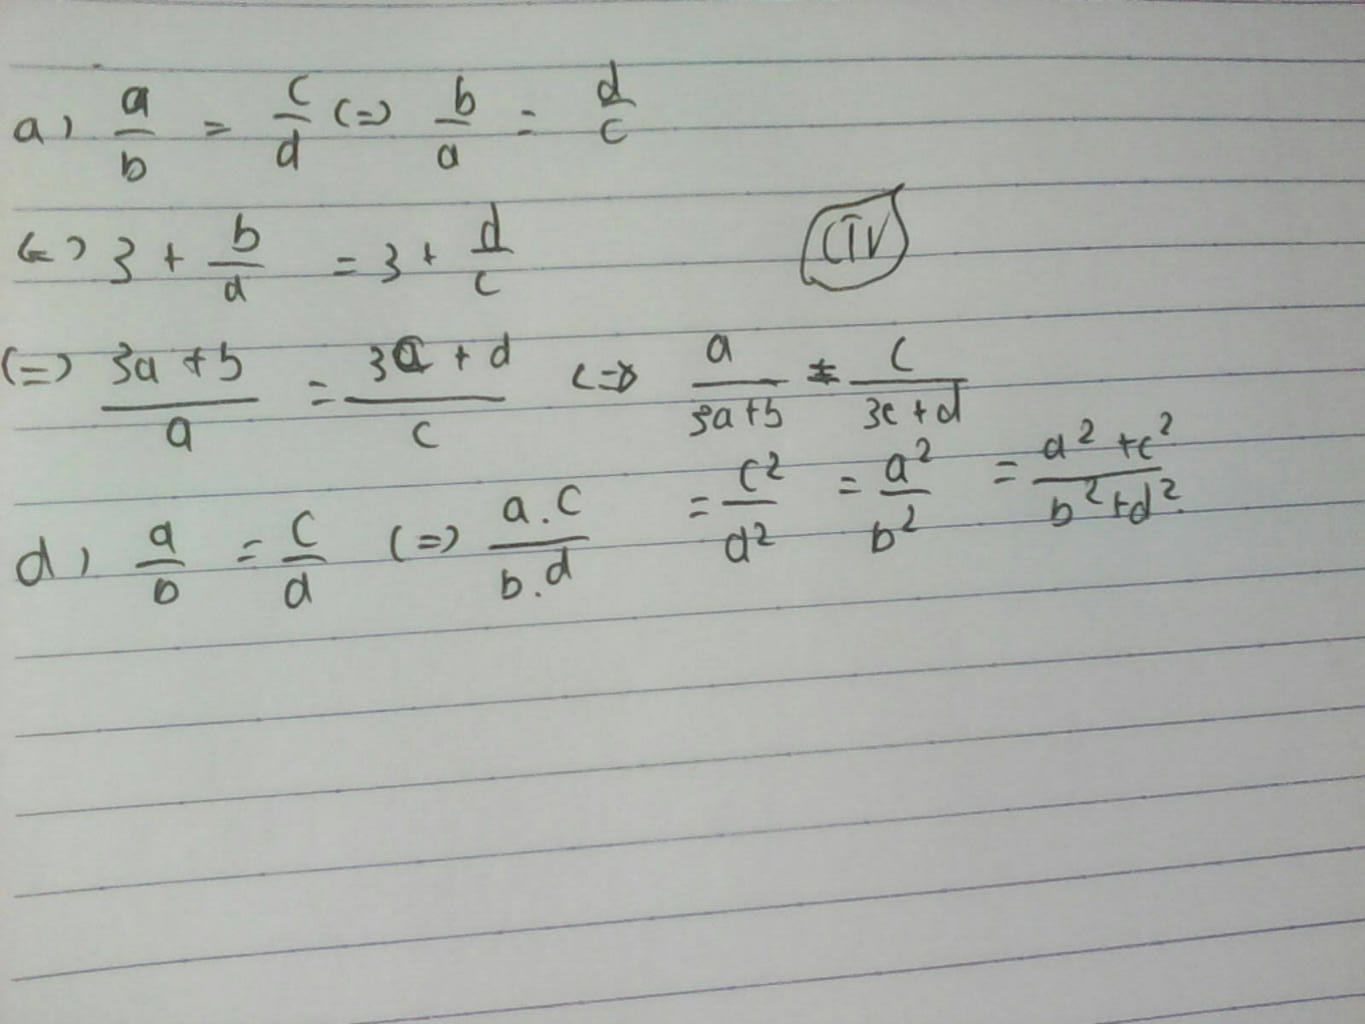 a) a/b = c/d (=) b/a = d/c
(=) 3 + b/a = 3 + d/c
CTV
(=) 3a + b/a = 3c + d/c <=> a/3a+b = c/3c+d
d) a/b = c/d (=) a.c/b.d = c²/d² = a²/b² = a²+c²/b²+d².